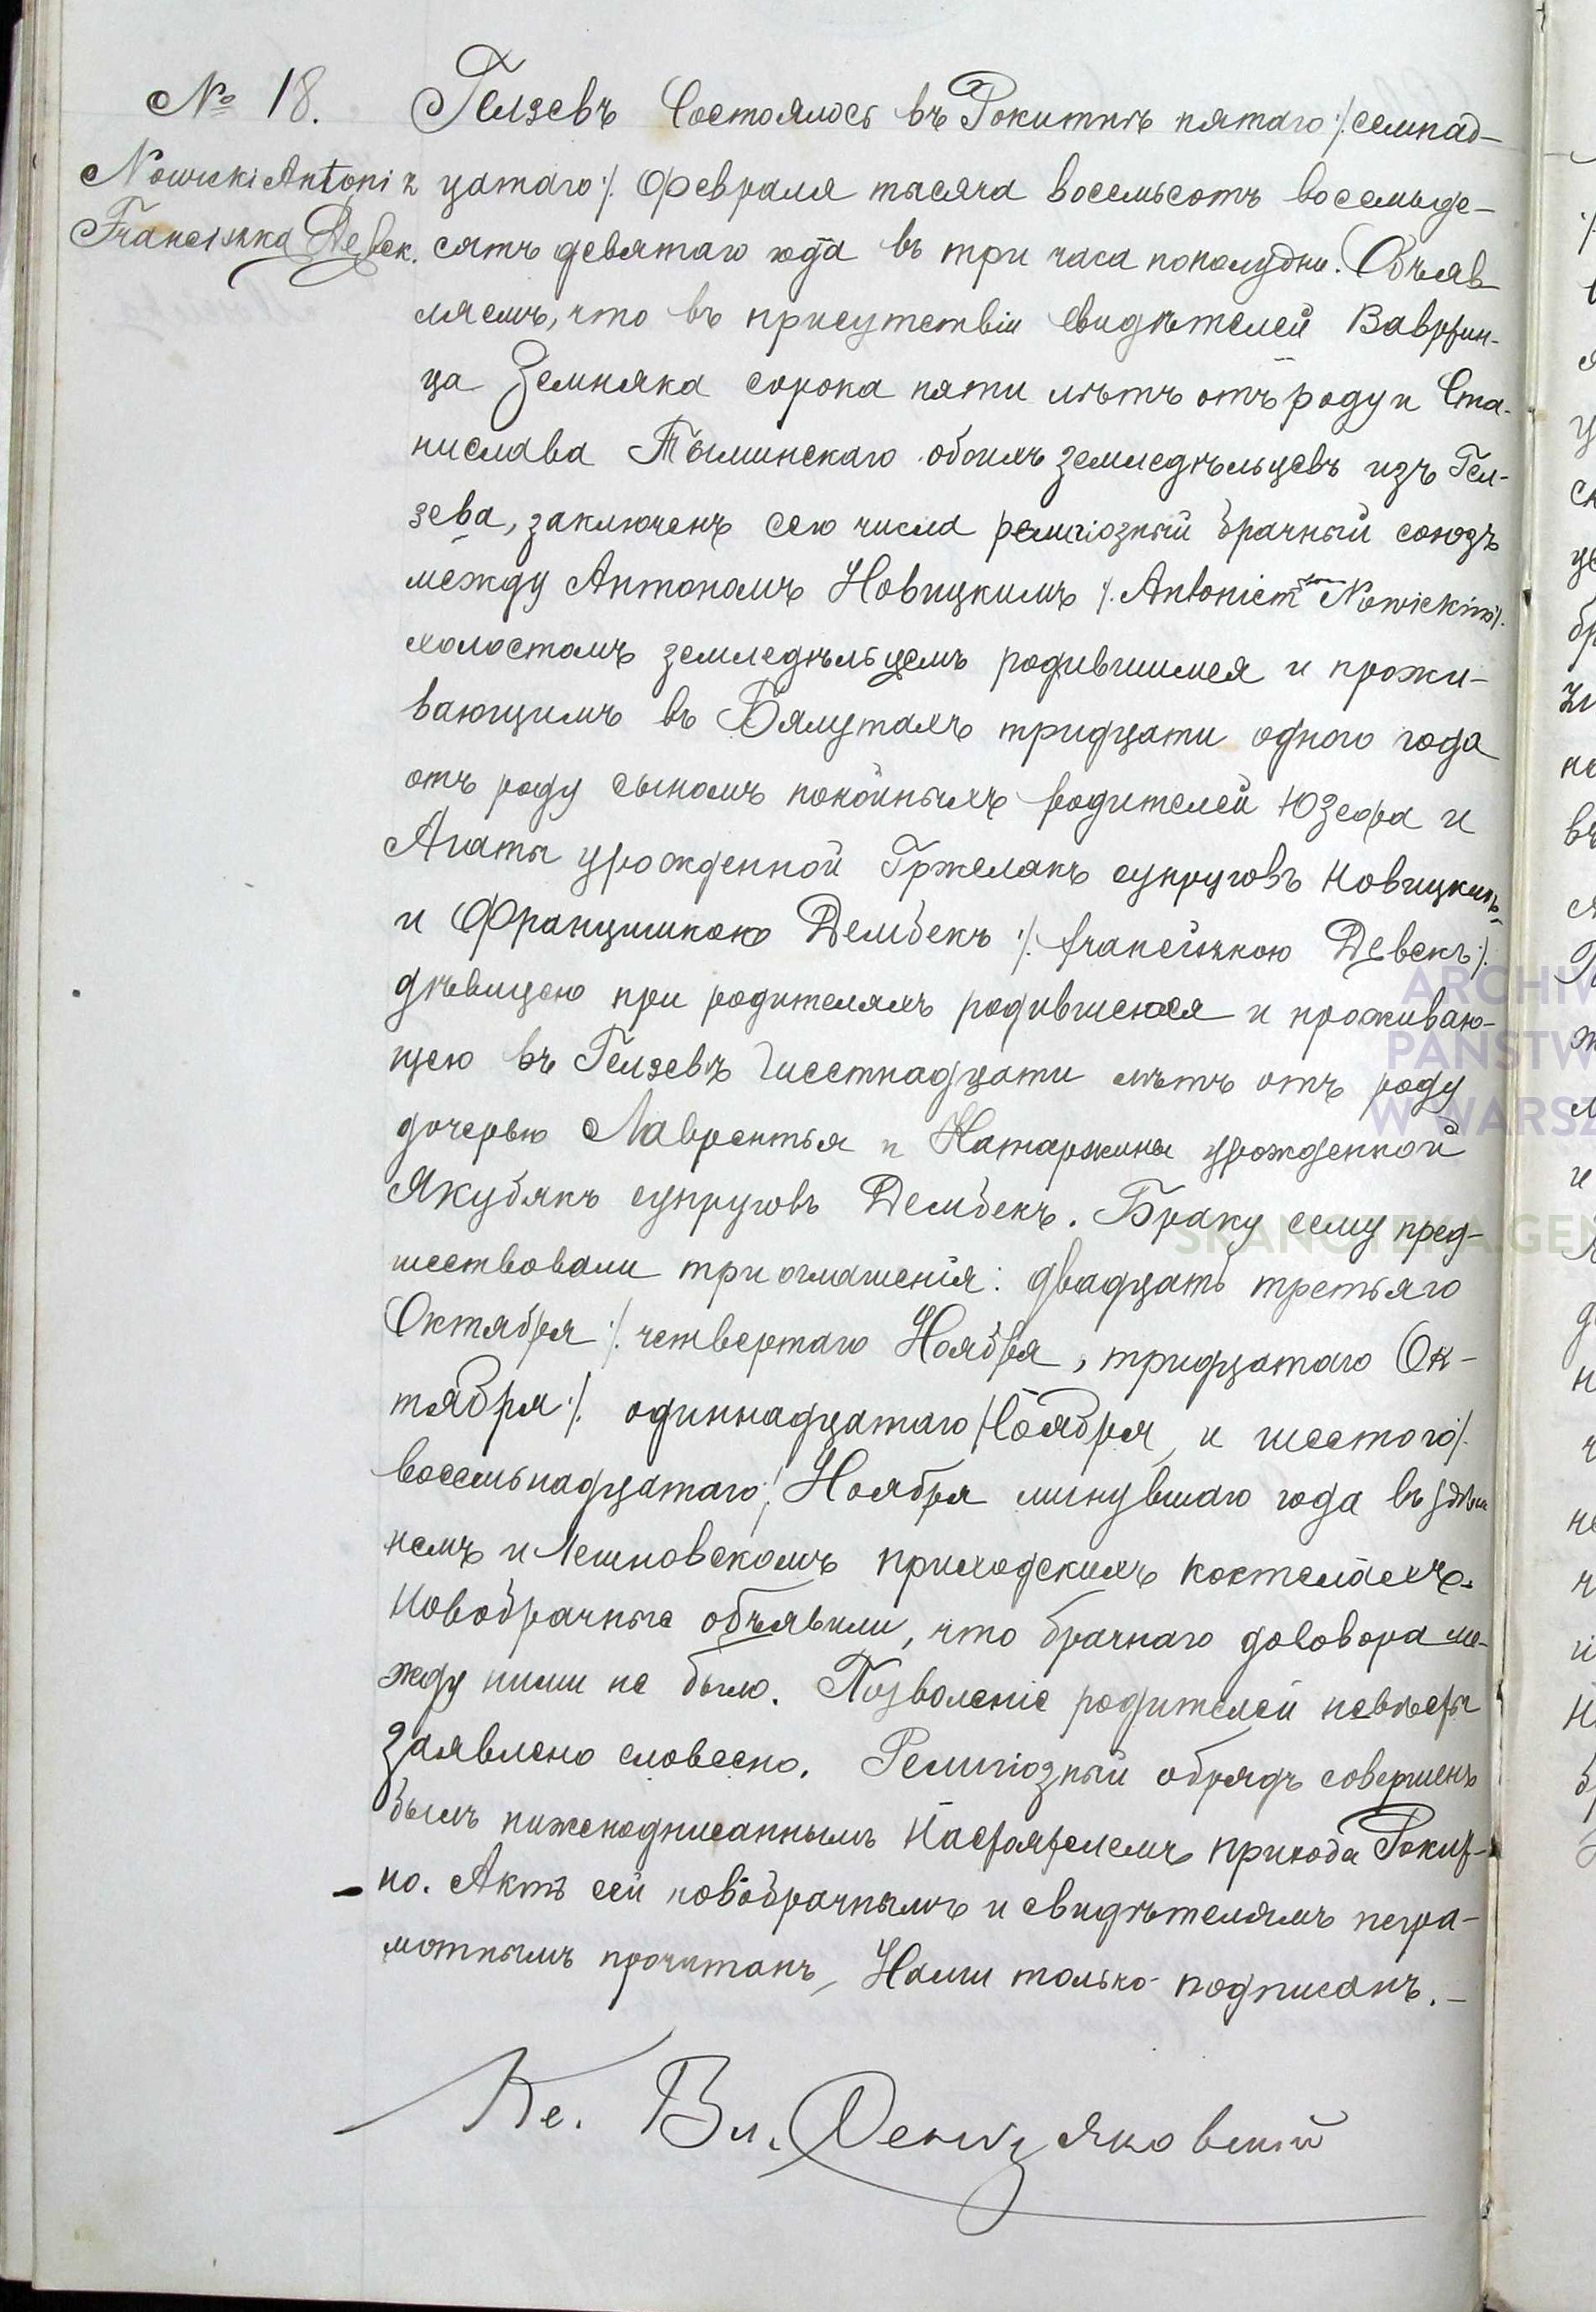 № 18.
Nowicki Antoni z
Franciszka Dębek.
Гелзевъ Состоялось въ Рокитнѣ пятаго ./. семнад-
цатаго ./. Февраля тысяча восемьсотъ восемьде-
сятъ девятаго года въ три часа пополудни. Объяв
ляемъ, что въ присутствіи свидѣтелейВавржин-
ца Земняка сорока пяти лѣтъ отъ роду и Ста-
нислава Тыминскаго обоихъ земледѣльцевъ изъ Гел-
зева, заключенъ сего числа религіозный брачный союзъ
между Антономъ Новицкимъ ./. Antoniem Nowickim ./.
холостомъ земледѣльцемъ родившимся и прожи-
вающимъ въ Бялутахъ тридцати одного года
отъ роду сыномъ покойныхъ родителей Юзефа и
Агаты урожденной Гржелякъ супруговъ Новицкихъ
и Францишкою Дембекъ ./. Franciszkою Дębекъ ./.
дѣвицею при родителяхъ родившеюся и проживаю-
щею въ Гелзевѣ шестнадцати лѣтъ отъ роду
дочерью Лаврентья и Катаржины урожденной
Якубякъ супруговъ Дембекъ. Браку сему пред-
шествовали три оглашенія: двадцать третьяго
Октября ./. четвертаго Ноября, тридцатаго Ок-
тября ./. одиннадцатаго Ноября и шестого ./.
восемьнадцатаго ./. Ноября минувшаго года въ здѣш
немъ и Лешновскомъ приходскихъ костелахъ.
Новобрачные объявили, что брачнаго договора ме-
жду ними не было. Позволеніе родителей невѣсты
заявлено словесно. Религіозный обрядъ совершенъ
былъ нижеподписаннымъ Настоятелемъ прихода Рокит-
но. Актъ сей новобрачнымъ и свидѣтелямъ негра-
мотнымъ прочитанъ, Нами только подписанъ. —
Кс. Вл.
ARCHIW
PAŃSTW
W WARSZ
SKANOTEKA.GEN